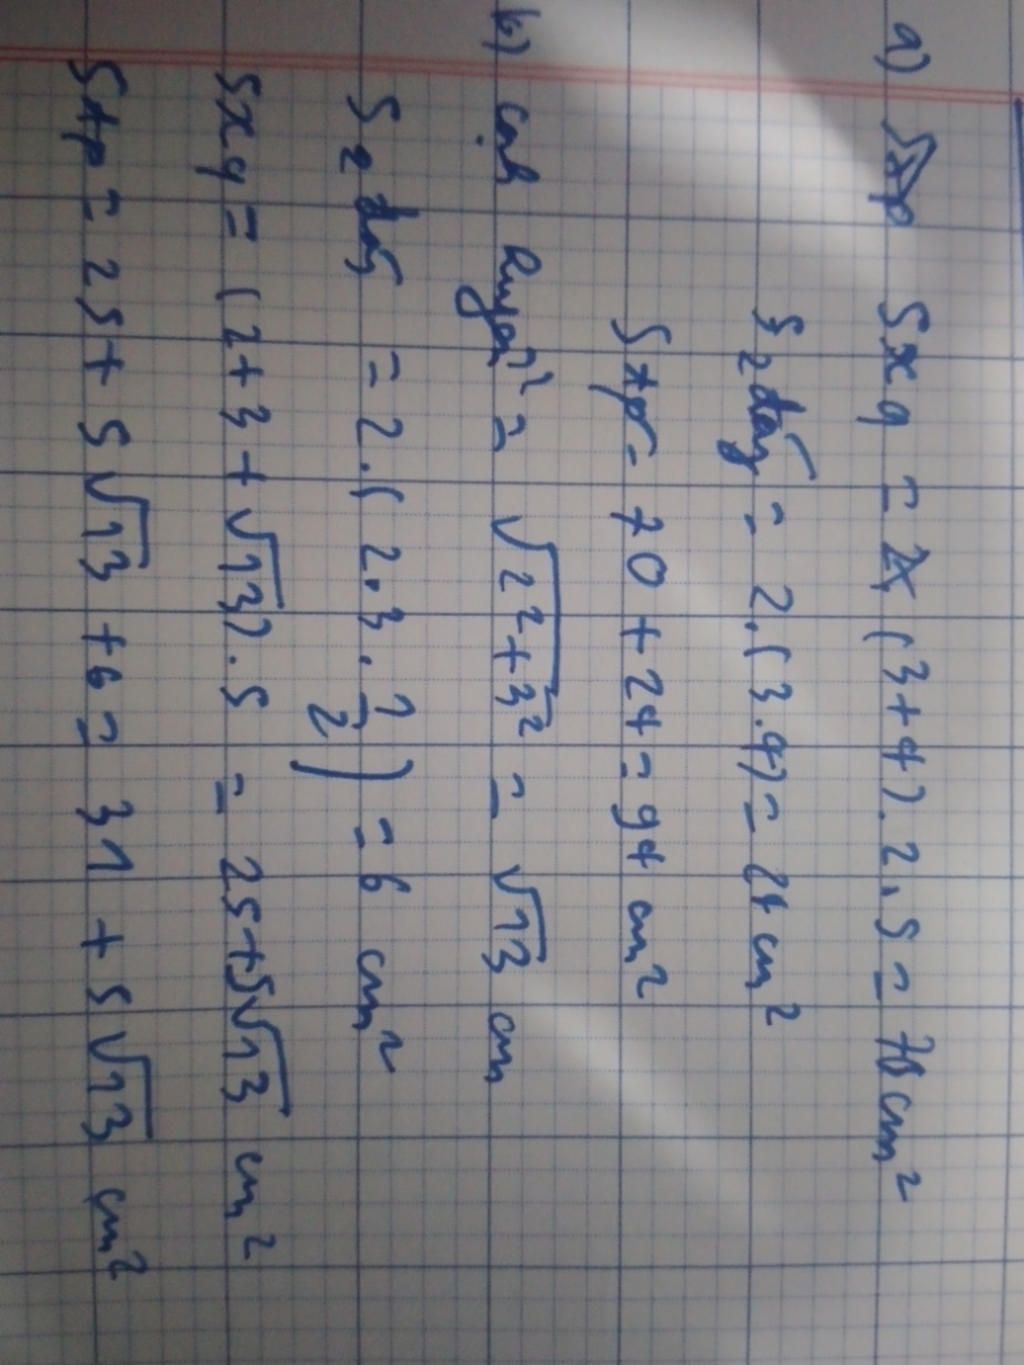 a) Sxq = (3+4).2.5 = 70 cm²
S 2 đáy = 2.(3.4) = 24 cm²
Stp = 70 + 24 = 94 cm²
b) cạh huyền² = √2²+3² = √13 cm
S 2 đáy = 2.(2.3.1/2) = 6 cm²
Sxq = (2+3+√13).5 = 25+5√13 cm²
Stp = 25+5√13 +6 = 31 + 5√13 cm²